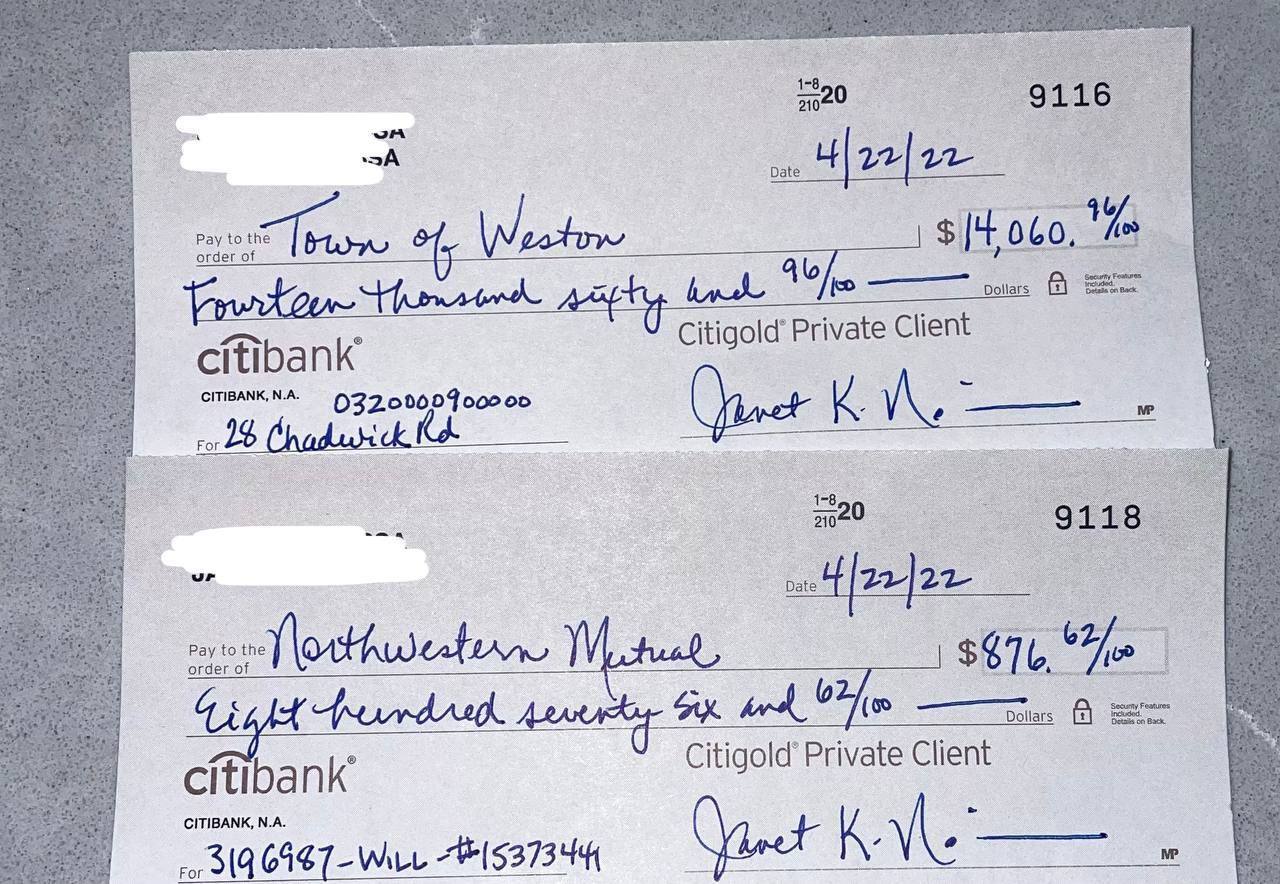 1-8
210 20
9116
Date 4/22/22
Pay to the order of Town of Weston $14,060. 96/100
Fourteen thousand sixty and 96/100 Dollars
Security Features Included. Details on Back.
citibank® Citigold® Private Client
CITIBANK, N.A. 0320000900000
For 28 Chadwick Rd Janet K. N. MP
1-8
210 20
9118
Date 4/22/22
Pay to the order of Northwestern Mutual $876. 62/100
Eight hundred seventy six and 62/100 Dollars
Security Features Included. Details on Back.
citibank® Citigold® Private Client
CITIBANK, N.A.
For 3196987-WILL-#15373441 Janet K. N. MP